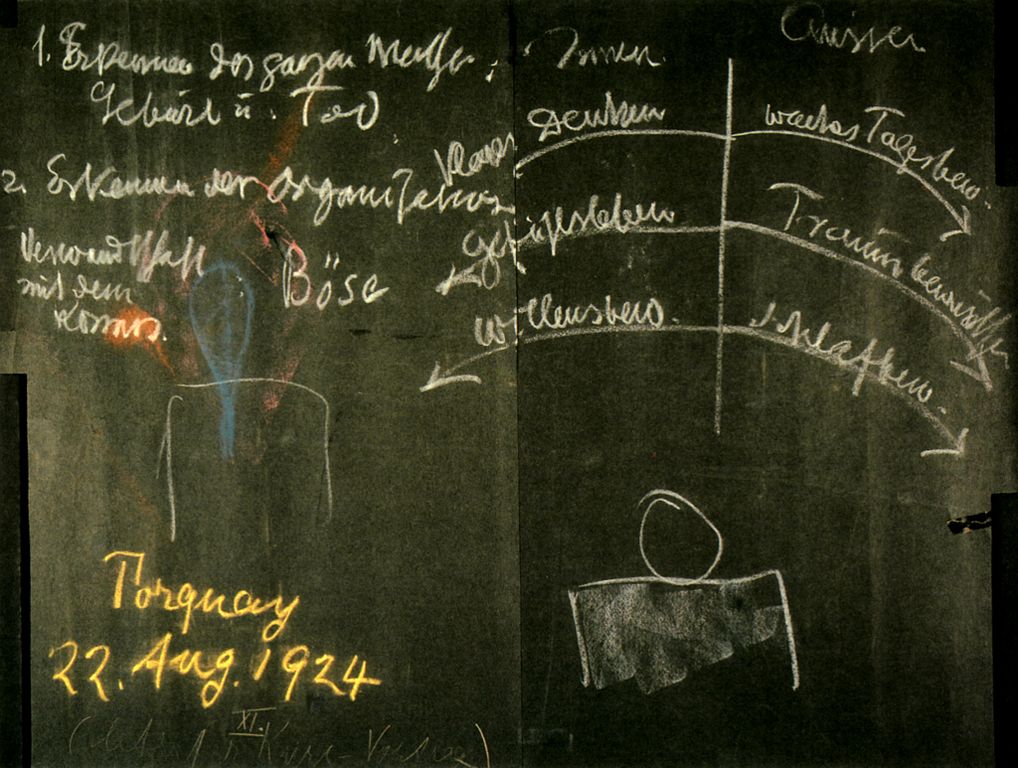 1. Erkennen des ganzen Mensch:
Geburt u. Tod
2. Erkennen der Organisation
Verwandtschaft
mit dem
Kosmos.
Böse
Torquay
22. Aug. 1924
XI.
Innen.
Aussen
Denken
waches Tagesbew.
Gefühlsleben
Traumbewusst
Willensbew.
Schlafbew.